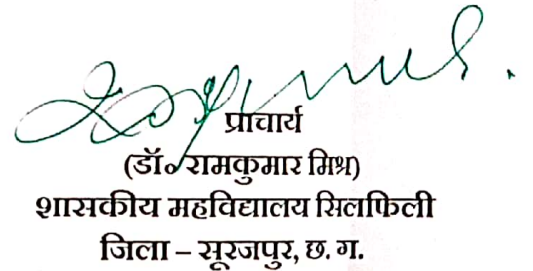 प्राचार्य
(डॉ० रामकुमार मिश्र)
शासकीय महविद्यालय सिलफिली
जिला – सूरजपुर, छ. ग.